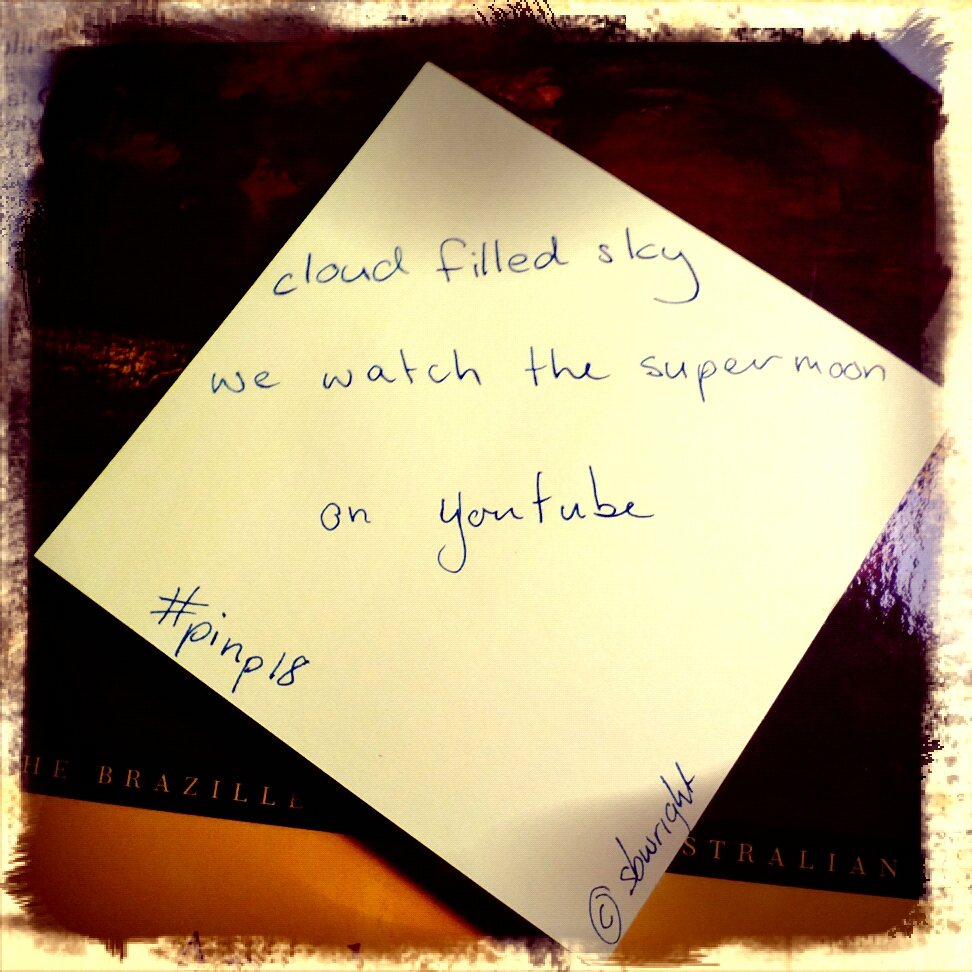 cloud filled sky
we watch the supermoon
on youtube
#pinp18
© sbwright
HE BRAZILLE
STRALIAN